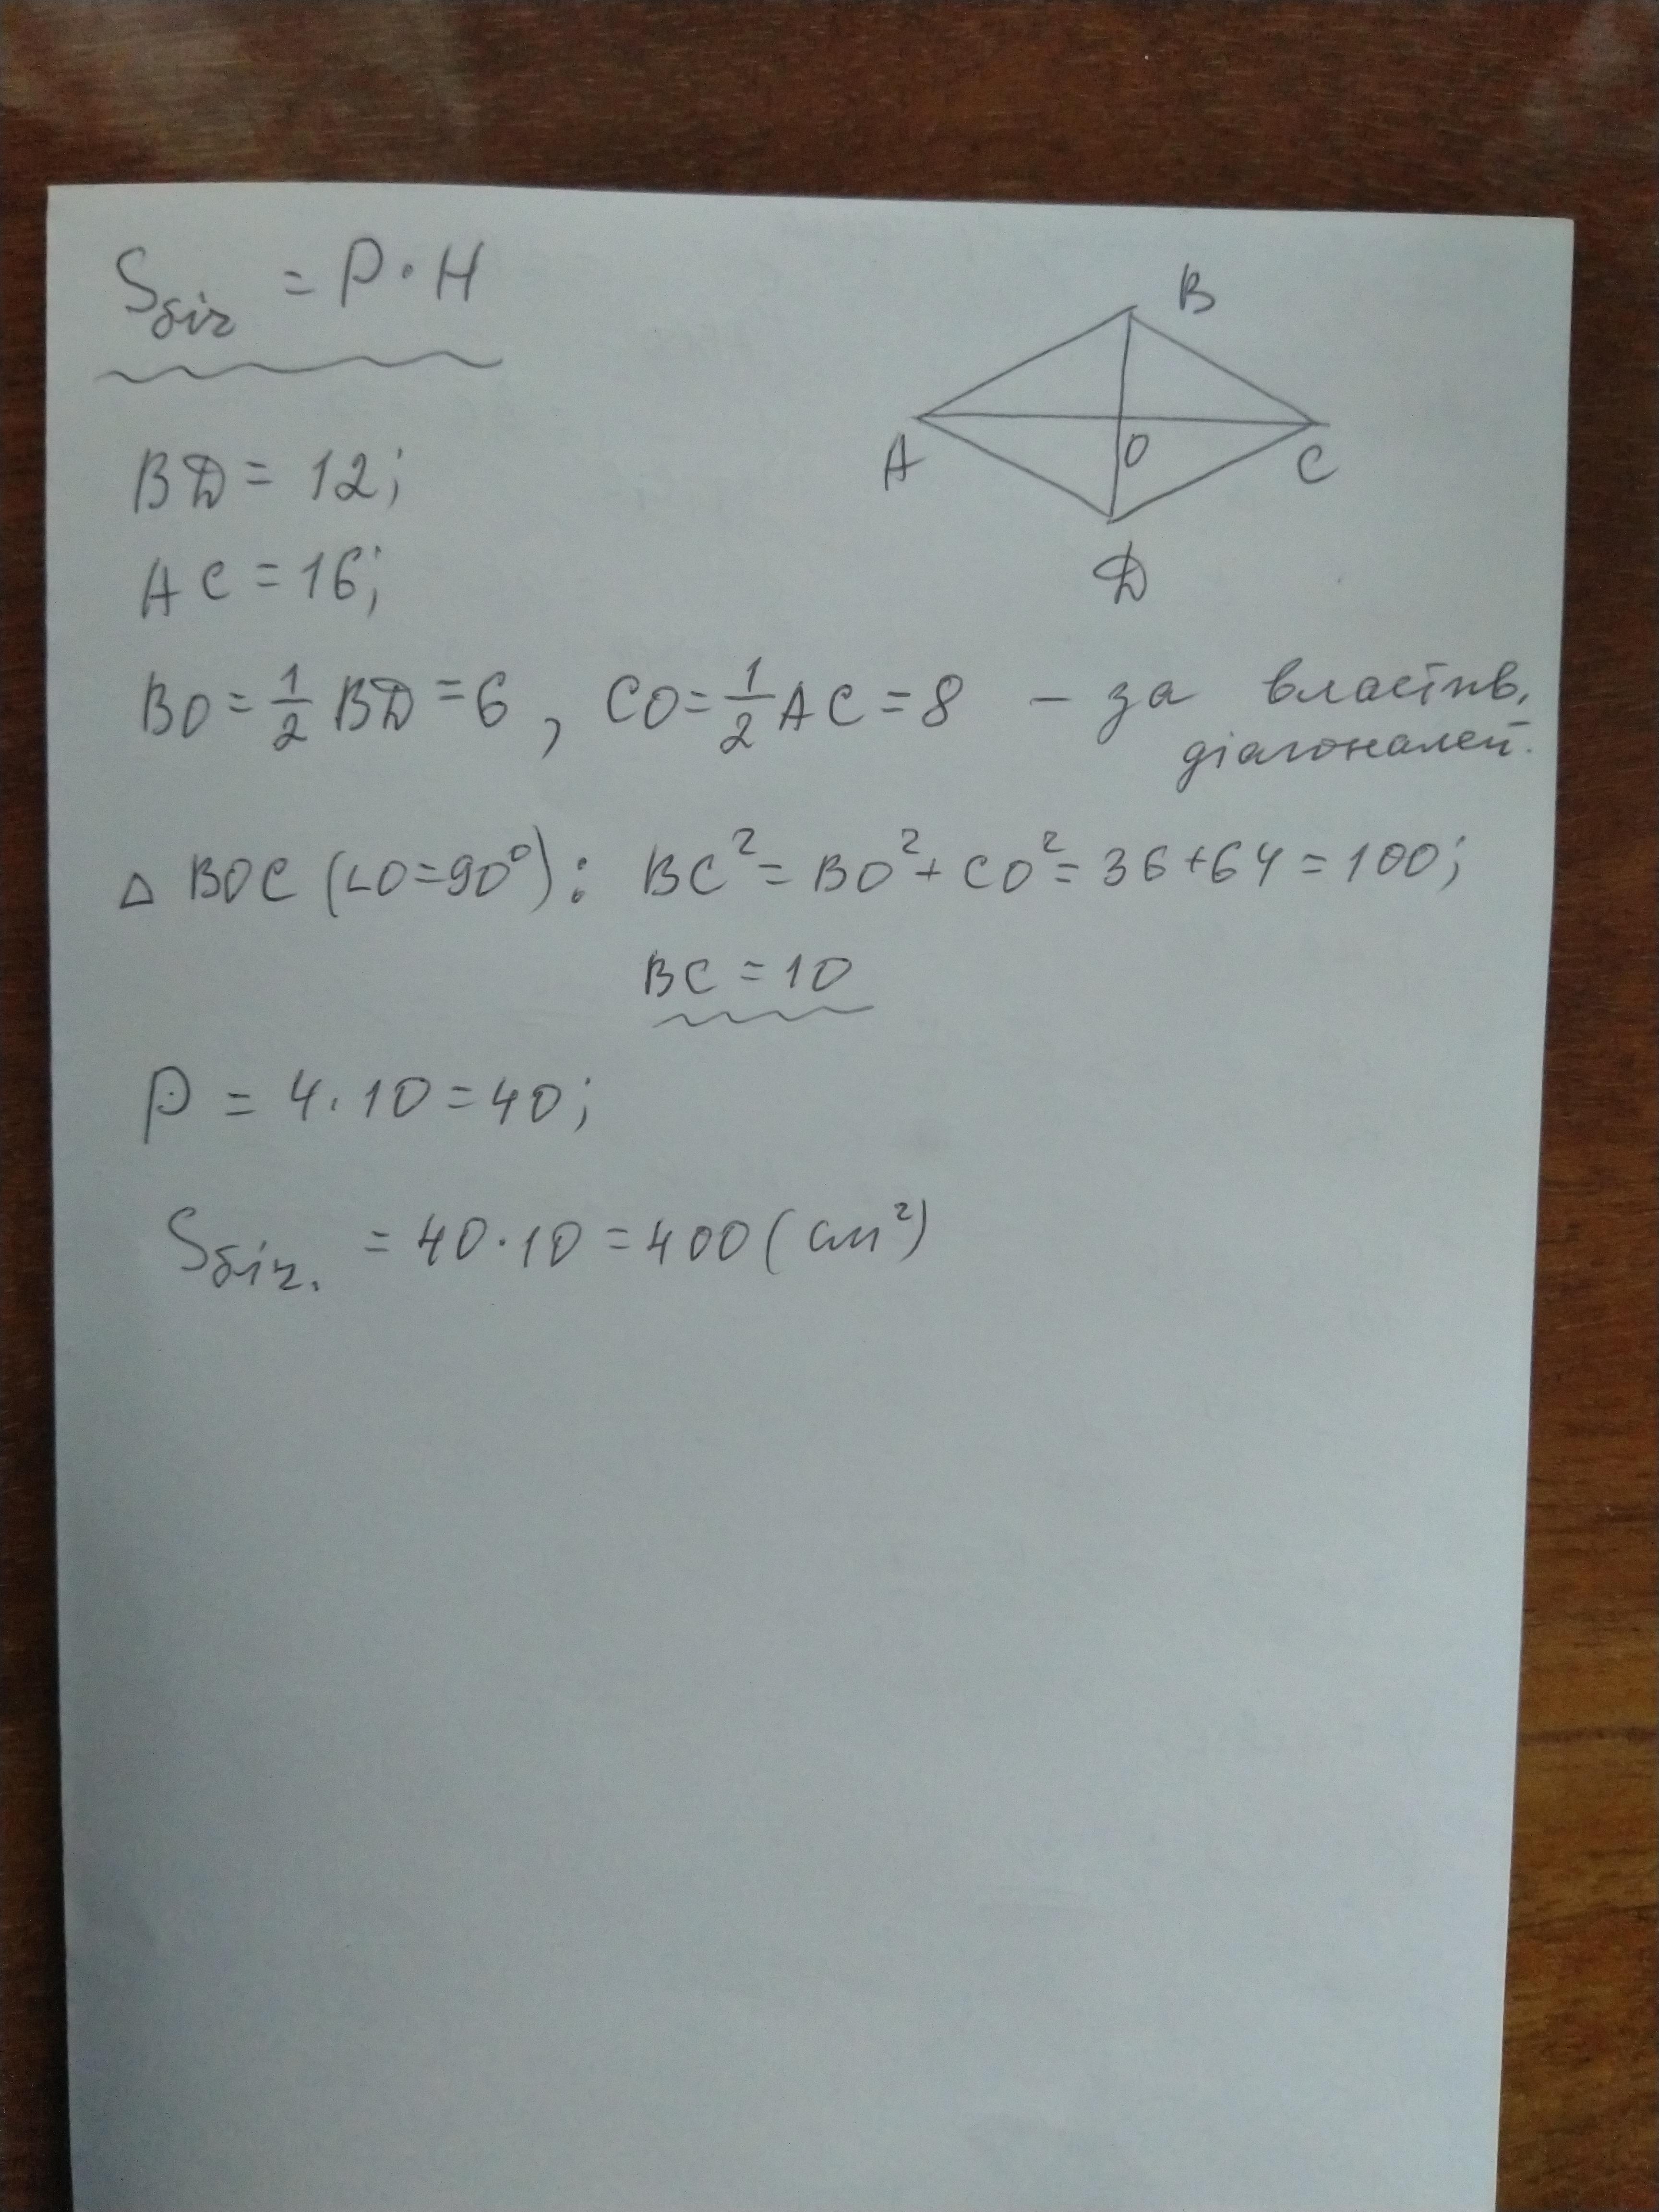 Sбіч = P · H
B
A
O
C
D
BD = 12;
AC = 16;
BO = 1/2 BD = 6, CO = 1/2 AC = 8 – за властив.
діагоналей.
△ BOC (∠O=90°): BC² = BO² + CO² = 36+64 = 100;
BC = 10
P = 4 · 10 = 40;
Sбіч. = 40 · 10 = 400 (см²)